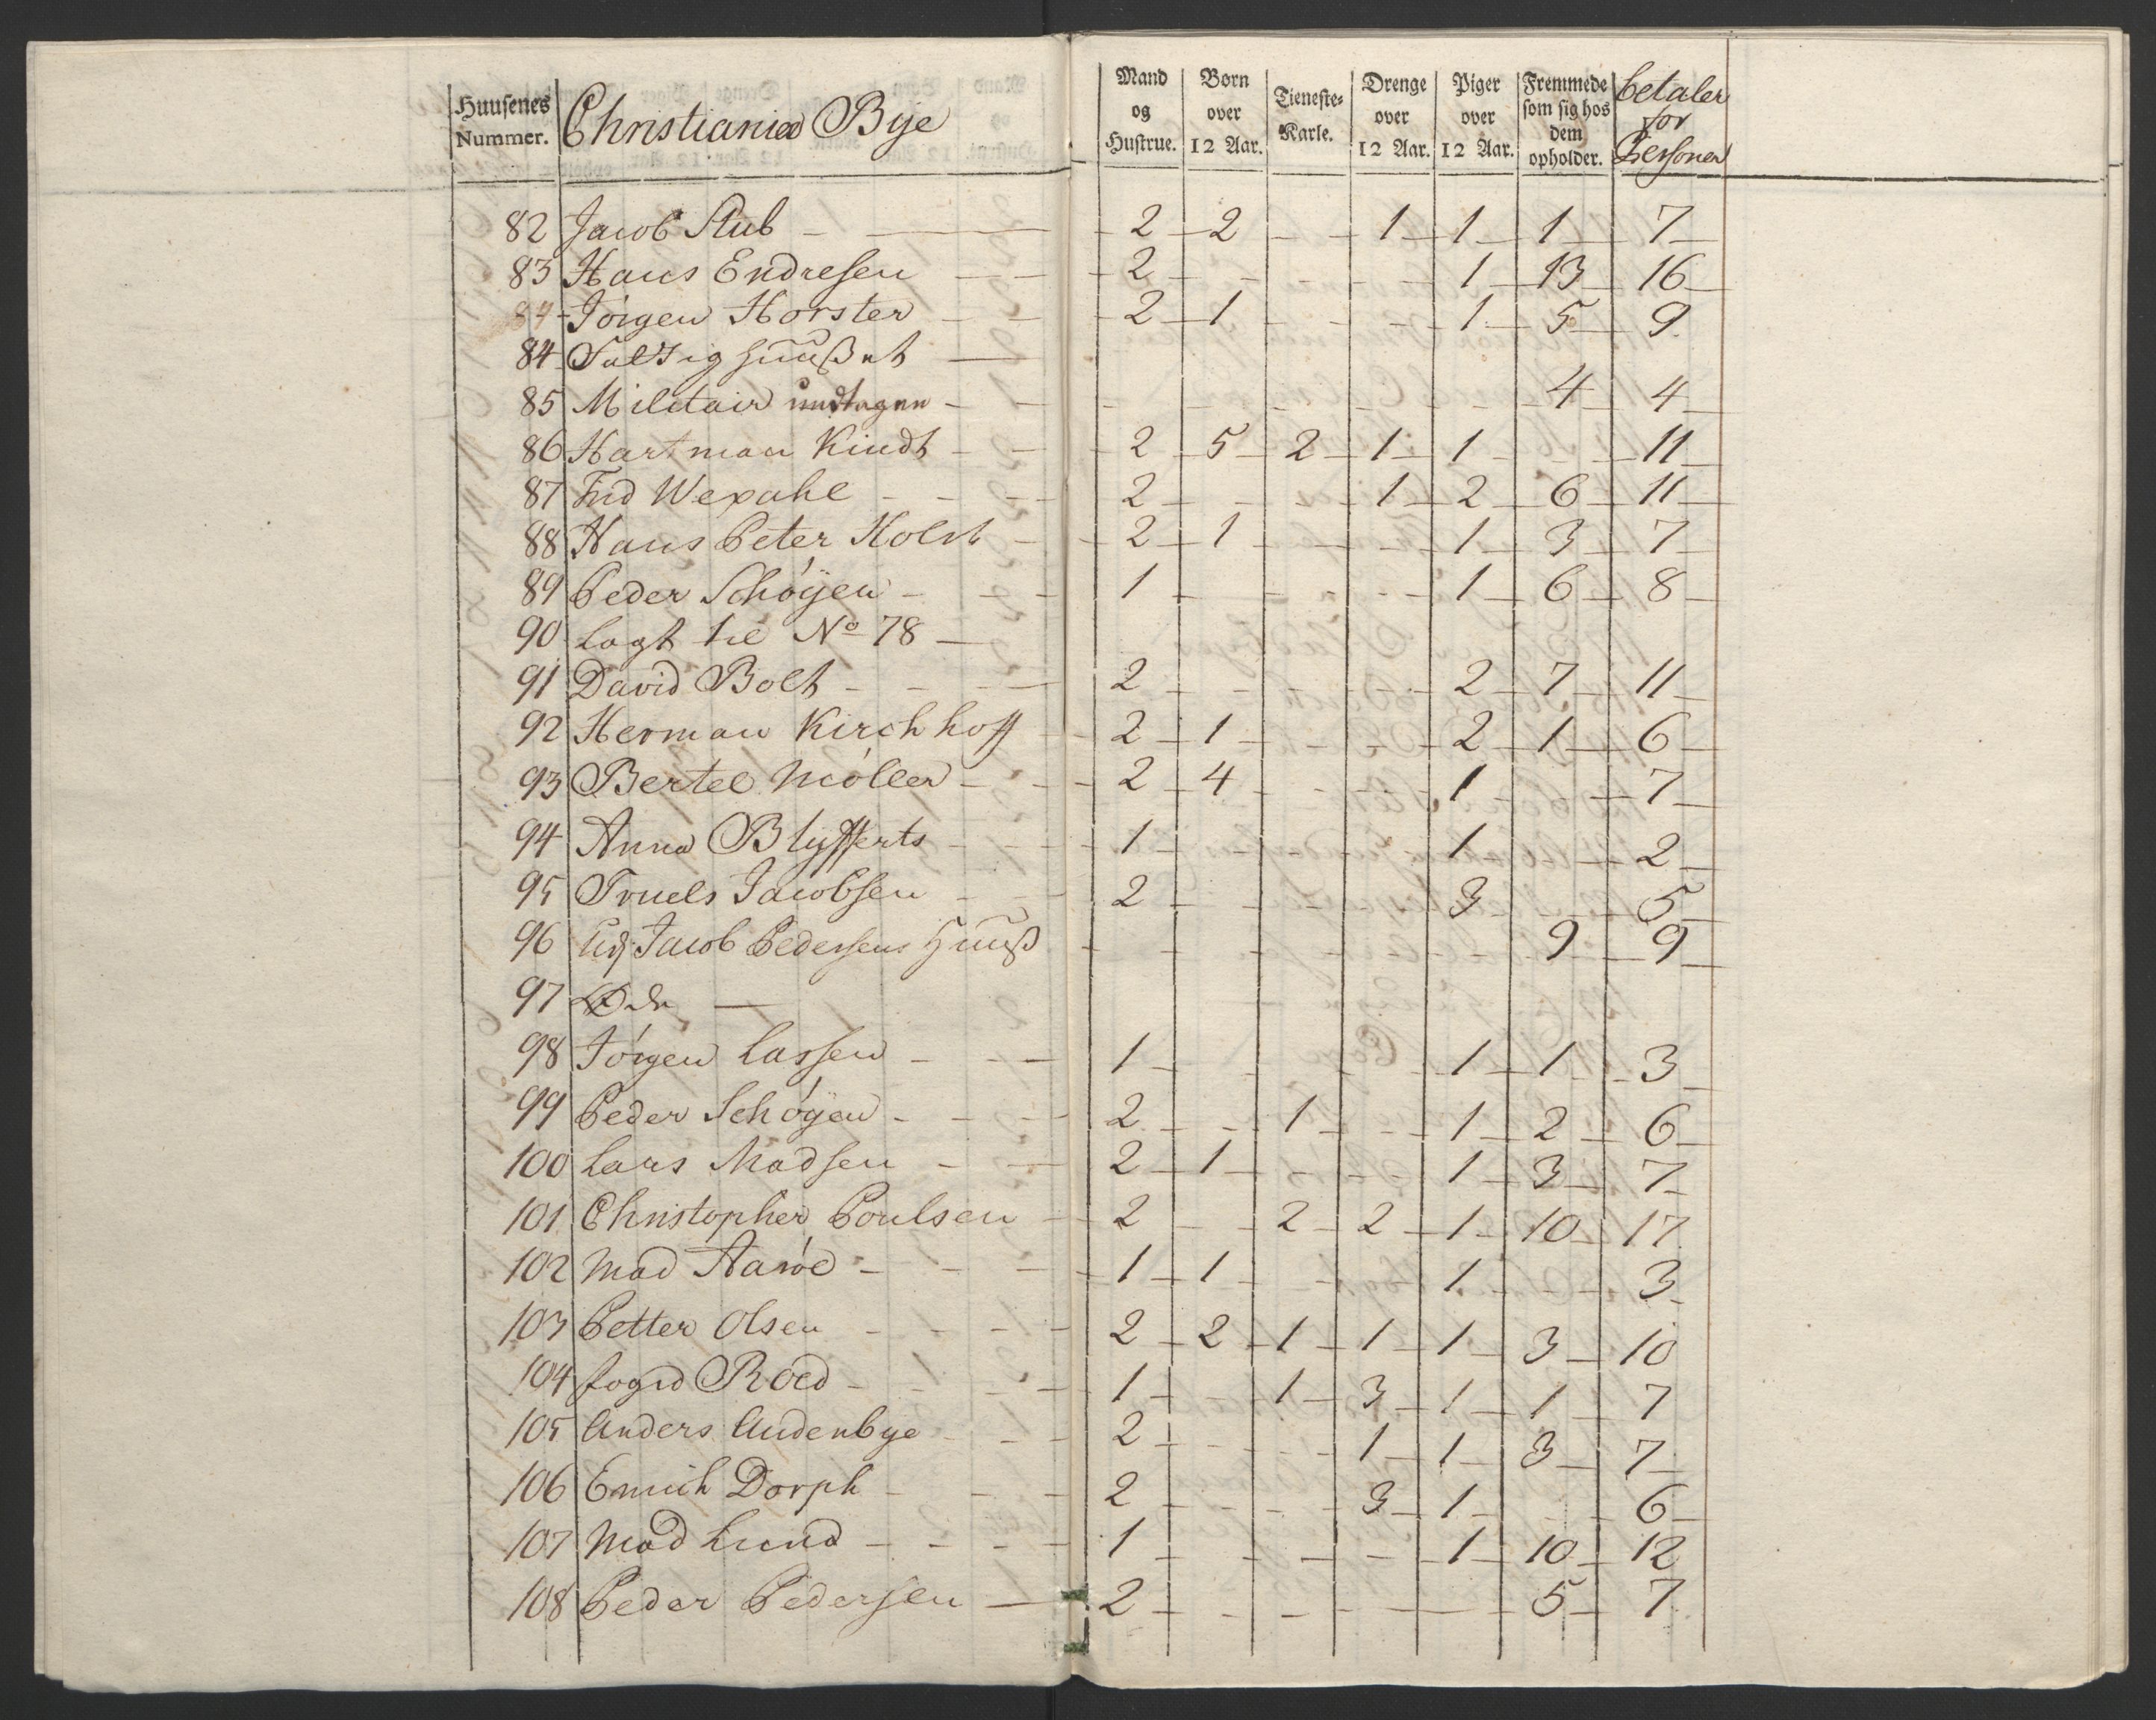 Huusenes Nummer. Christiania Bye Mand og Hustrue. Børn over 12 Aar. Tieneste-Karle. Drenge over 12 Aar. Piger over 12 Aar. Fremmede som sig hos dem opholder. betaler for Personer
82 Jacob Stub - 2 - 2 - - 1 - 1 - 1 - 7
83 Hans Endresen - 2 - - - - 1 - 13 - 16
84 Jørgen Horster - 2 - 1 - - - 1 - 5 - 9
84 Fattig Huuset -
85 Militair undtagen - - - - - - 4 - 4
86 Hartman Kindt - 2 - 5 - 2 - 1 - 1 - - 11
87 Frid Wexahl - 2 - - - 1 - 2 - 6 - 11
88 Hans Peter Holst - 2 - 1 - - - 1 - 3 - 7
89 Peder Schøyen - 1 - - - - 1 - 6 - 8
90 Lagt til No 78 -
91 David Bolt - 2 - - - - 2 - 7 - 11
92 Herman Kirchhoff - 2 - 1 - - - 2 - 1 - 6
93 Bertel Møller - 2 - 4 - - - 1 - - 7
94 Anna Blyfferts - 1 - - - - 1 - - 2
95 Truels Jacobsen - 2 - - - - 3 - - 5
96 Jacob Pedersens Huuß - - - - - - 9 - 9
97 Øde -
98 Jørgen Lassen - 1 - - - - 1 - 1 - 3
99 Peder Schøyen - 2 - - 1 - - 1 - 2 - 6
100 Lars Madsen - 2 - 1 - - - 1 - 3 - 7
101 Christopher Poulsen - 2 - - 2 - 2 - 1 - 10 - 17
102 Mad Aarøe - 1 - 1 - - - 1 - - 3
103 Petter Olsen - 2 - 2 - 1 - 1 - 1 - 3 - 10
104 fogd Roed - 1 - - 1 - 3 - 1 - 1 - 7
105 Anders Audenbye - 2 - - - 1 - 1 - 3 - 7
106 Emich Dorph - 2 - - - 3 - 1 - - 6
107 Mad Lund - 1 - - - - 1 - 10 - 12
108 Peder Pedersen - 2 - - - - - 5 - 7